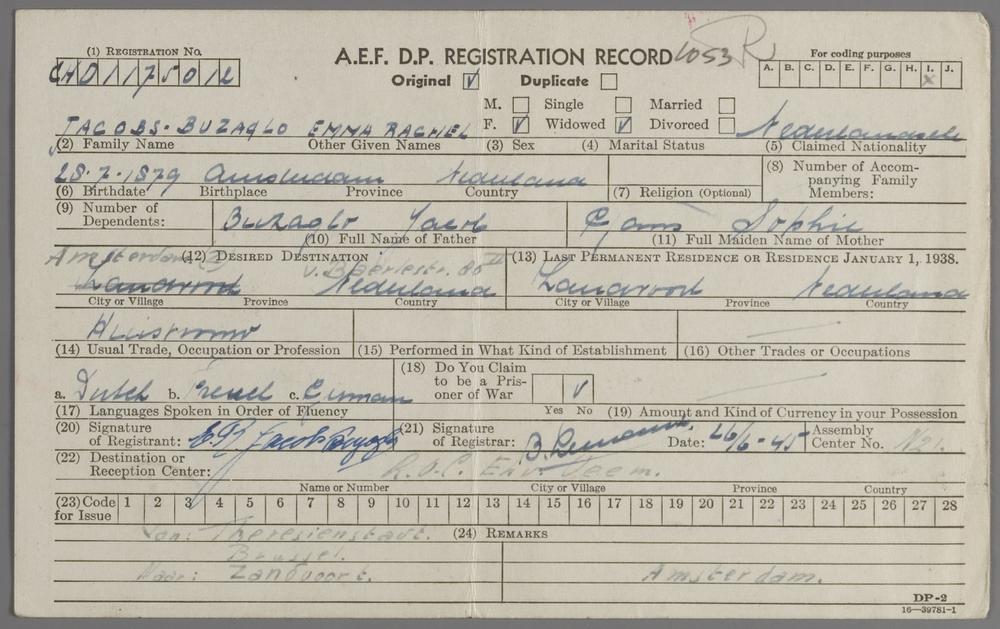 (1) REGISTRATION NO.
A.E.F. D.P. REGISTRATION RECORD 1053 R
For coding purposes
Original ☑ Duplicate ☐
A. B. C. D. E. F. G. H. I. J.
X
M. ☐ Single ☐ Married ☐
JACOBS-BUZAGLO EMMA RACHEL F. ☑ Widowed ☑ Divorced ☐
(2) Family Name Other Given Names (3) Sex (4) Marital Status (5) Claimed Nationality
28.7.1879 Amsterdam Nederland
(6) Birthdate Birthplace Province Country (7) Religion (Optional)
(8) Number of Accompanying Family Members:
(9) Number of Dependents:
Buzaglo Jacob
(10) Full Name of Father
Sophie
(11) Full Maiden Name of Mother
Amsterdam (12) DESIRED DESTINATION v. Baerlestr. 80 II
Zandvoort Nederland
City or Village Province Country
(13) LAST PERMANENT RESIDENCE OR RESIDENCE JANUARY 1, 1938.
Zandvoort Nederland
City or Village Province Country
Huisvrouw
(14) Usual Trade, Occupation or Profession (15) Performed in What Kind of Establishment (16) Other Trades or Occupations
a. Dutch b. French c. German
(17) Languages Spoken in Order of Fluency
(18) Do You Claim to be a Prisoner of War
Yes No
(19) Amount and Kind of Currency in your Possession
(20) Signature of Registrant:
(21) Signature of Registrar: Date: 26/6-45 Assembly Center No. N21.
(22) Destination or Reception Center:
Name or Number City or Village Province Country
(23) Code for Issue 1 2 3 4 5 6 7 8 9 10 11 12 13 14 15 16 17 18 19 20 21 22 23 24 25 26 27 28
Van: Theresienstadt. (24) REMARKS
Brussel.
Naar: Zandvoort. Amsterdam.
DP-2
16—39781-1